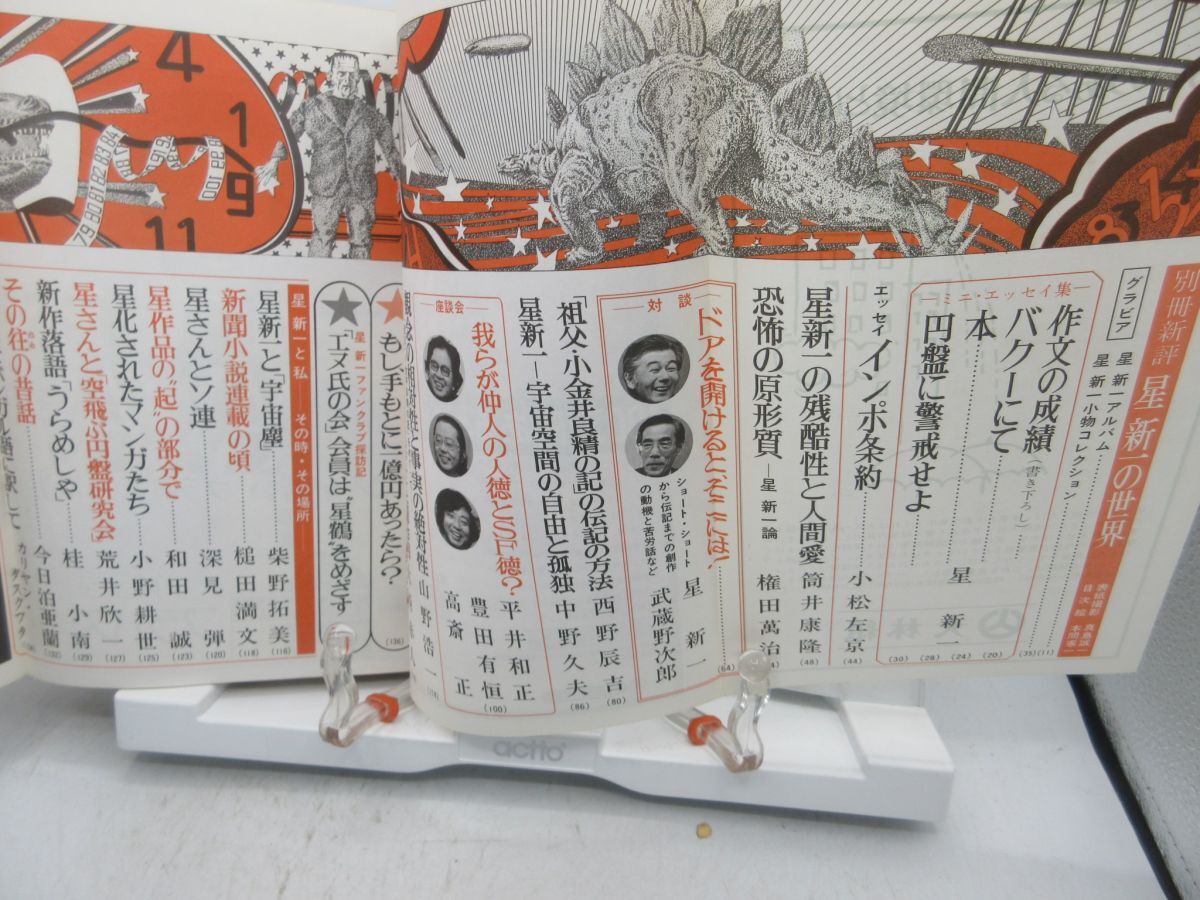 別冊新評 星新一の世界
表紙撮影 真鳥誠一
目次絵 本間客一
グラビア
星新一アルバム (11)
星新一小物コレクション (35)
ミニ・エッセイ集
作文の成績 (書き下ろし) (20)
バクーにて (24)
本 (28)
円盤に警戒せよ (30)
星新一
エッセイ インポ条約 小松左京 (44)
星新一の残酷性と人間愛 筒井康隆 (48)
恐怖の原形質 ―星新一論 権田萬治
対談
ドアを開けるとそこには! 星新一 (64)
ショート・ショート
から伝記までの創作
の動機と苦労話など
武蔵野次郎
「祖父・小金井良精の記」の伝記の方法 西野辰吉 (80)
星新一―宇宙空間の自由と孤独 中野久夫 (86)
座談会
我らが仲人の人徳とSF徳? 平井和正
豊田有恒 (100)
高斎正
観念の相対性と事実の絶対性 山野浩一
もし、手もとに一億円あったら? (136)
星新一ファンクラブ探訪記
「エヌ氏の会」会員は〝星鶴〟をめざす
星新一と私 ――その時・その場所
星新一と「宇宙塵」 柴野拓美 (116)
新聞小説連載の頃 槌田満文 (118)
星さんとソ連 深見弾 (120)
星作品の〝起〟の部分で 和田誠 (123)
星化されたマンガたち 小野耕世 (125)
星さんと「空飛ぶ円盤研究会」 荒井欣一 (127)
新作落語「うらめしや」 桂小南 (129)
その往の昔話 今日泊亜蘭 (132)
4
1
9
11
79 80 81 82 83 84
100
8
3
1
2
actto